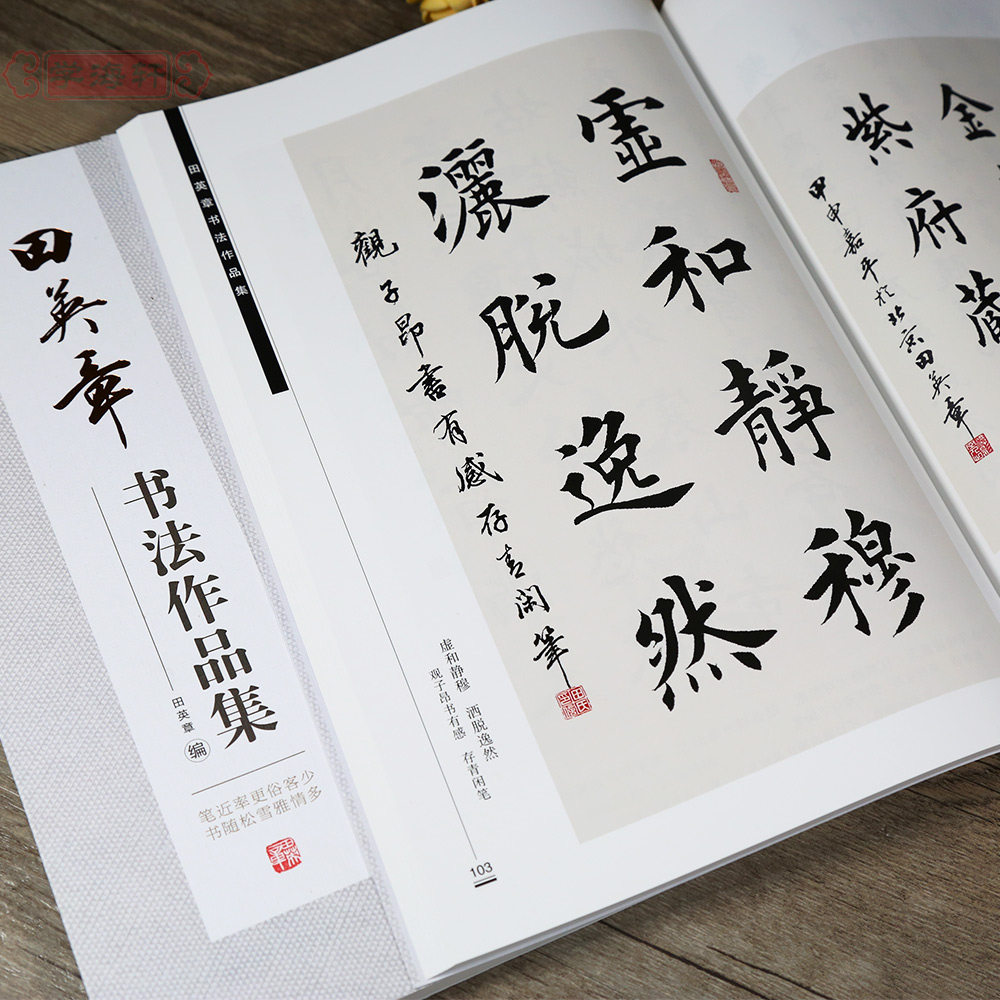 学海轩
田英章
书法作品集
田英章 编
笔近率更俗客少
书随松雪雅情多
田英章书法作品集
虚和靜穆
灑脫逸然
觀子昂書有感存青閑筆
虚和静穆 洒脱逸然
观子昂书有感 存青闲笔
103
金
紫府藏
甲申嘉平於北京田英章